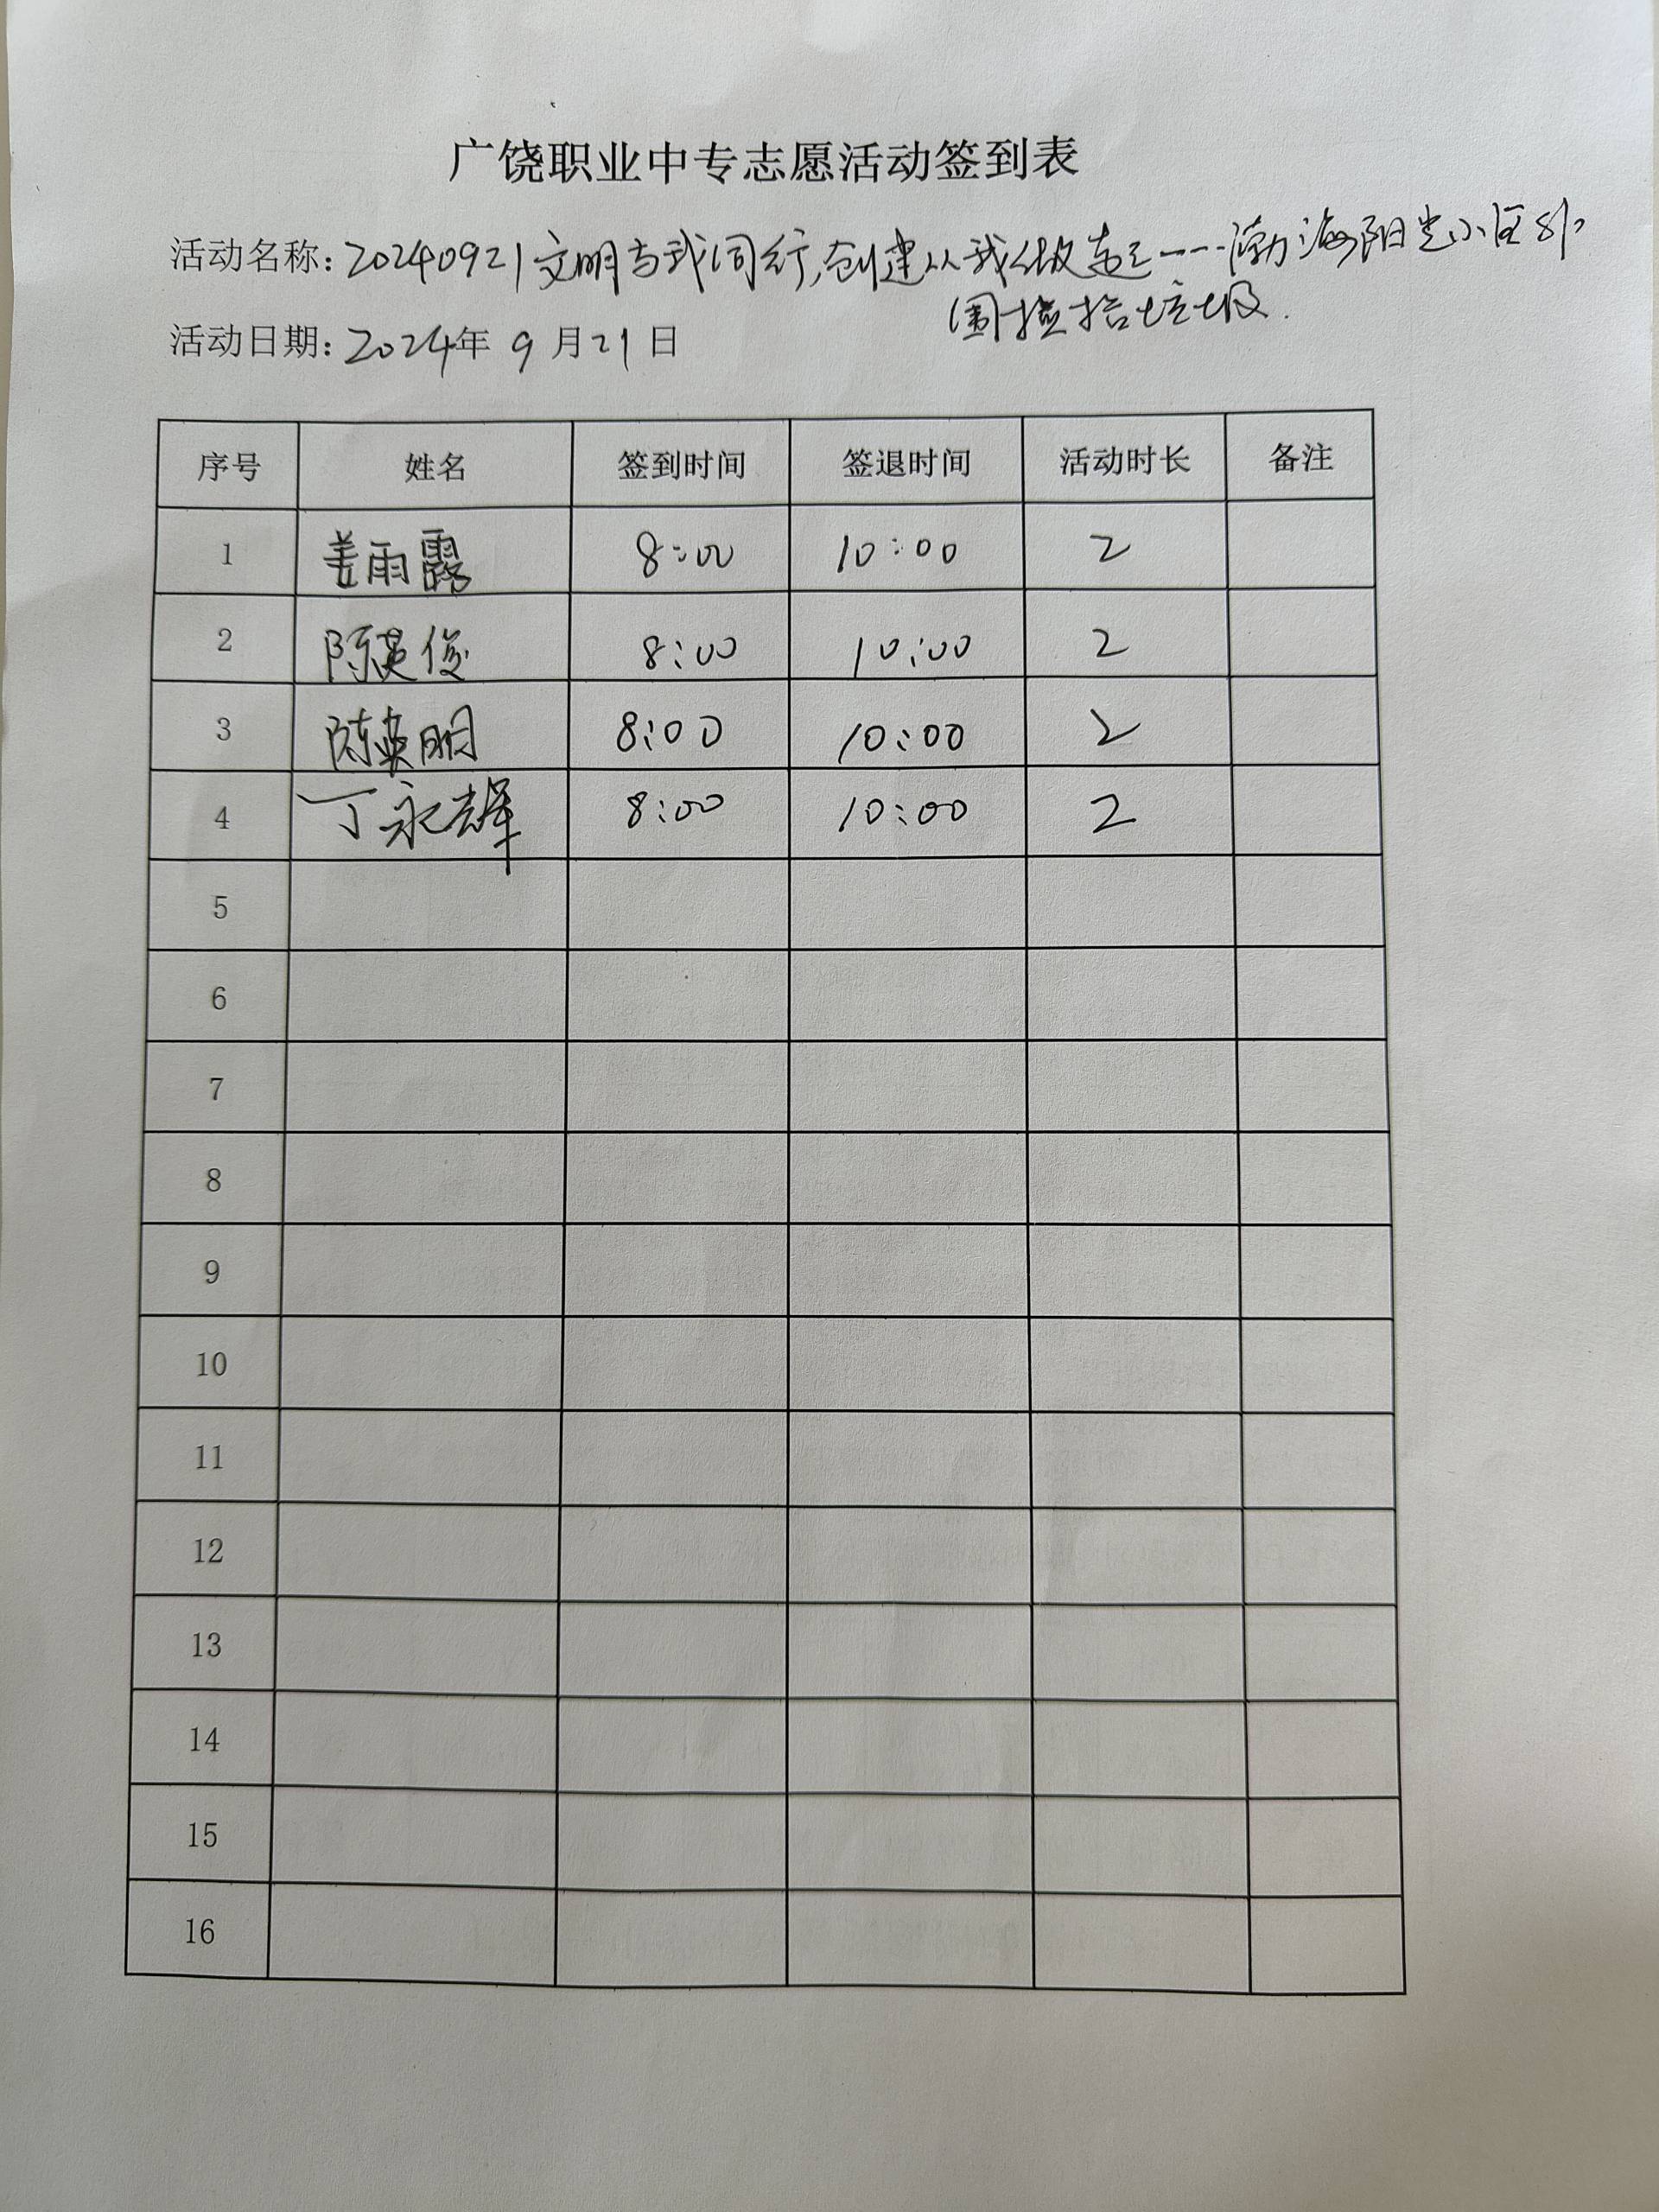 广饶职业中专志愿活动签到表
活动名称：20240921文明与我同行,创建从我做起----渤海阳光小区外
围捡拾垃圾.
活动日期：2024年 9月21日
序号 姓名 签到时间 签退时间 活动时长 备注
1 姜雨露 8:00 10:00 2
2 陈英俊 8:00 10:00 2
3 陈英明 8:00 10:00 2
4 丁永辉 8:00 10:00 2
5
6
7
8
9
10
11
12
13
14
15
16